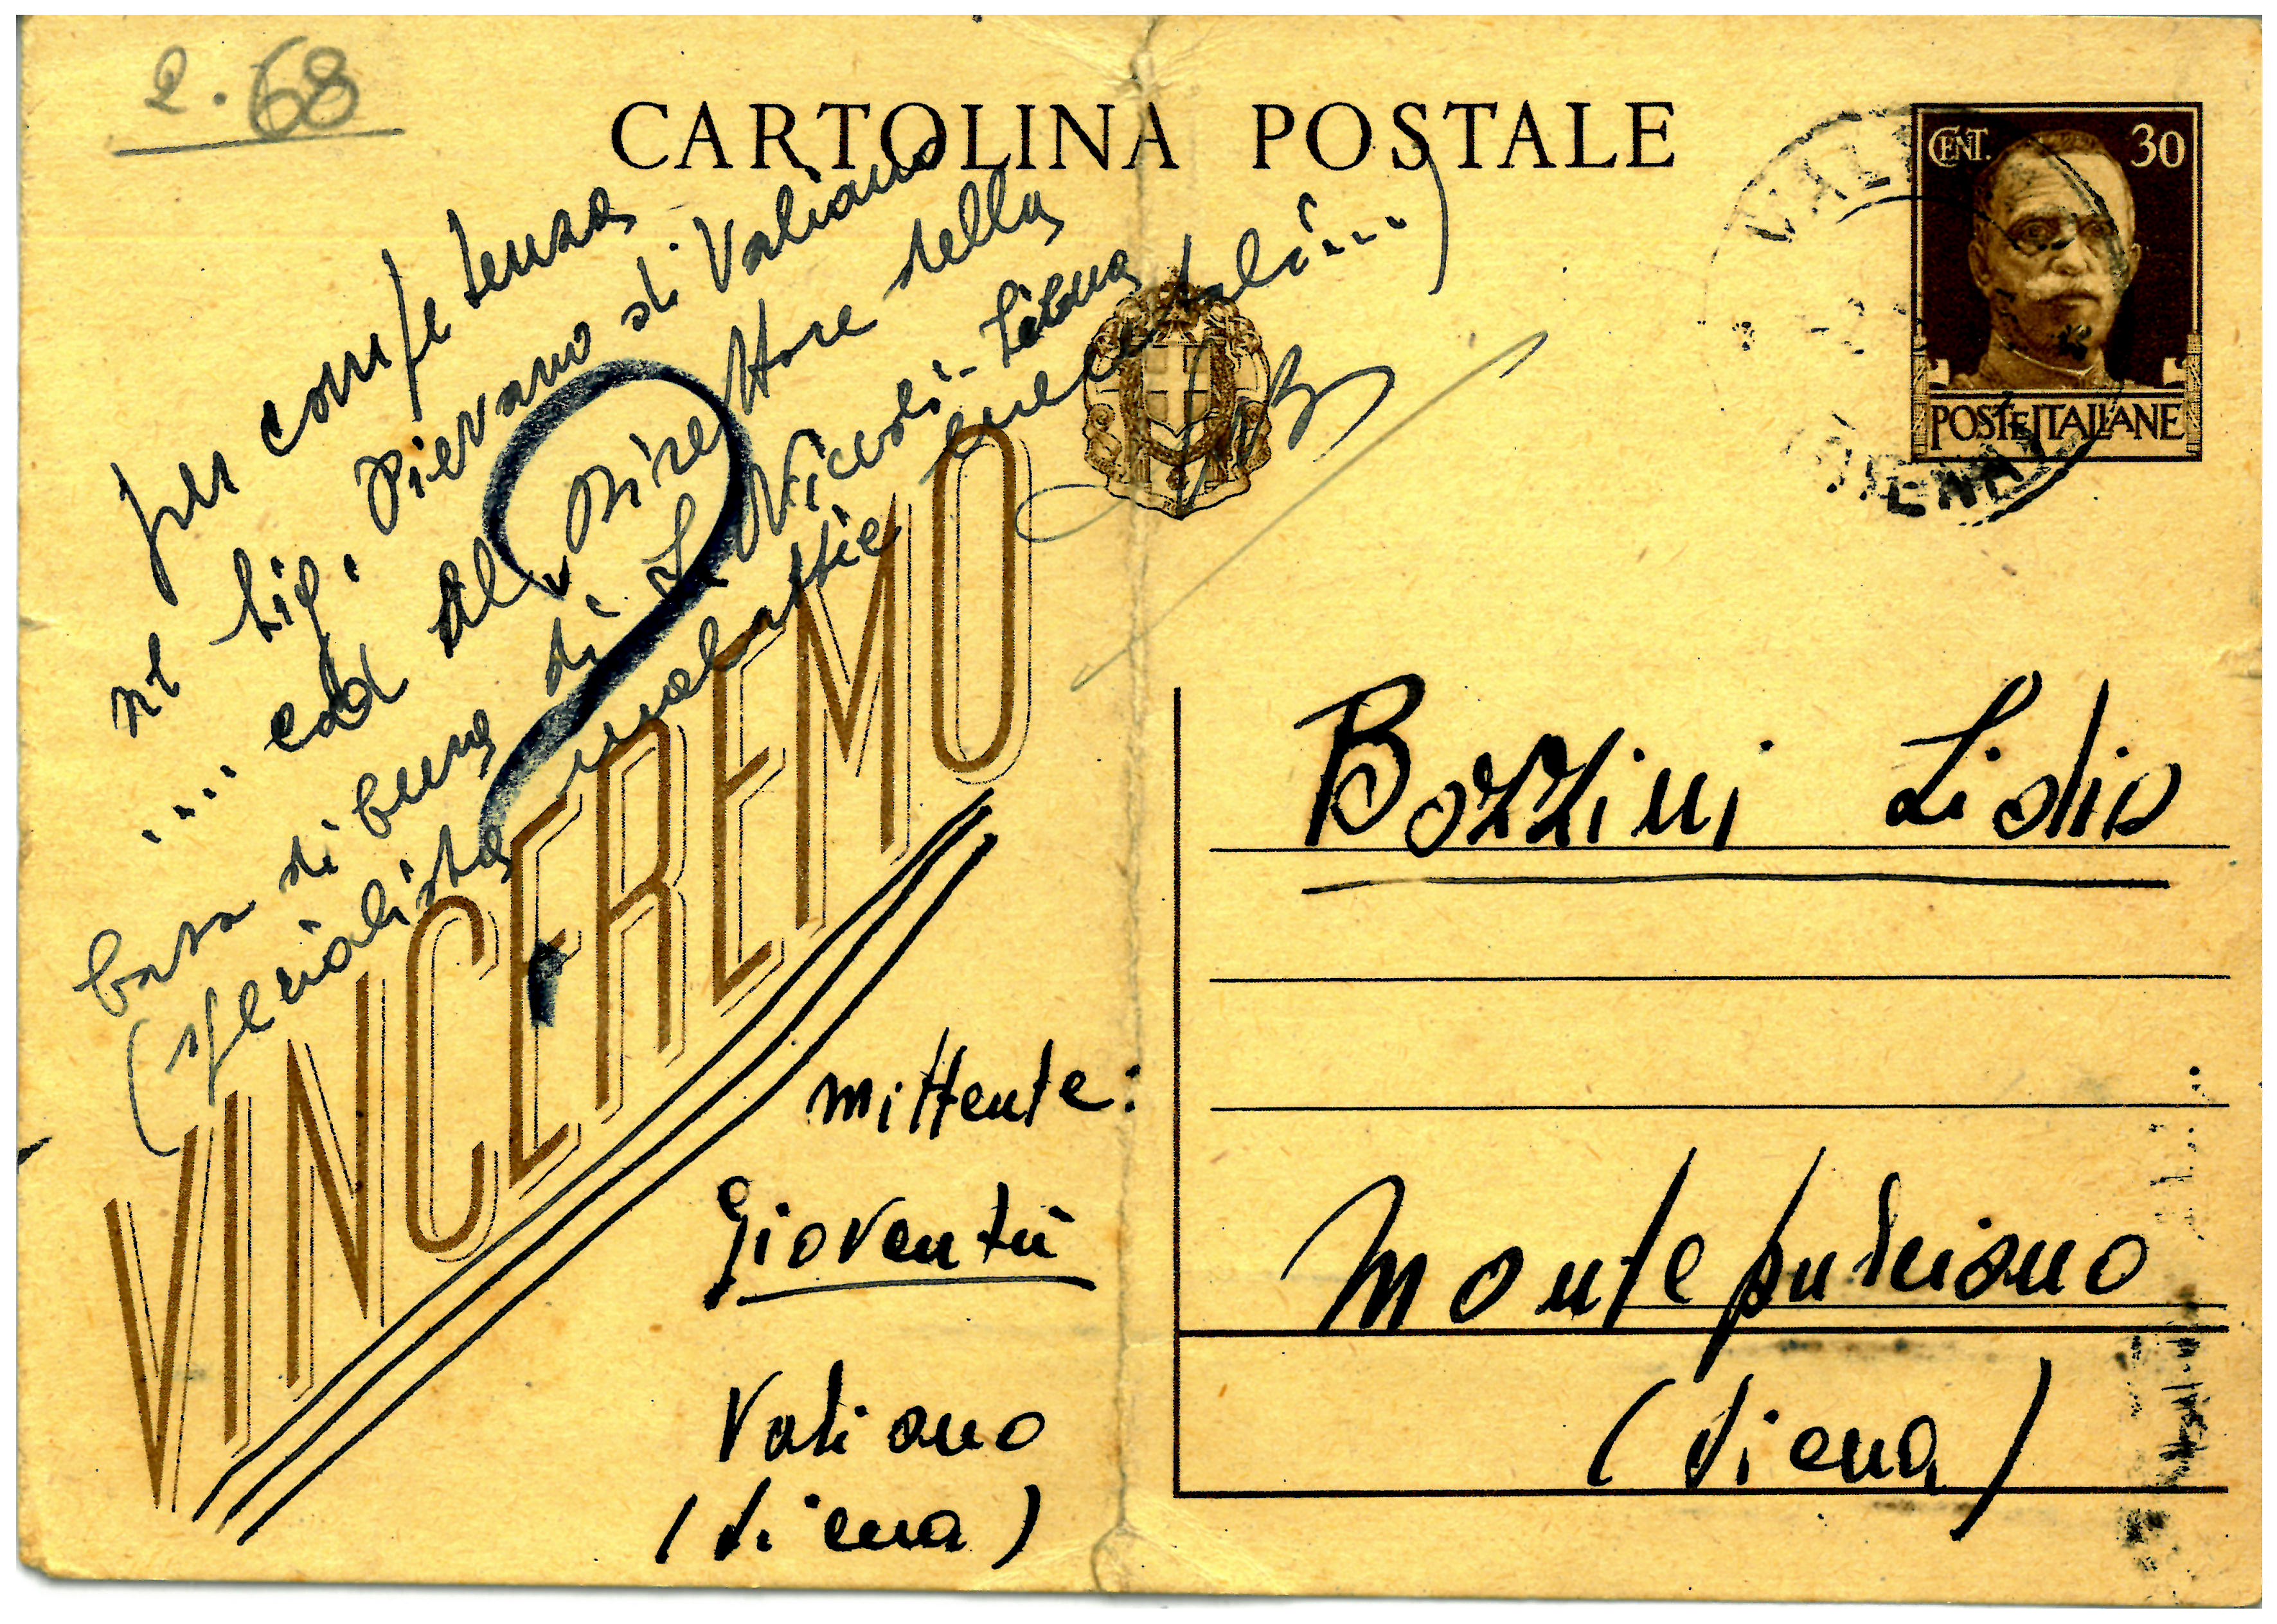 2.68
CARTOLINA POSTALE
CENT. 30
POSTE ITALIANE
per competenza
al Sig. Pievano di Valiano
.... ed al Direttore della
casa di cura di S. Niccolò - Siena
(specialista malattie mentali....)
VINCEREMO
Bozzini Lidio
mittente:
Gioventù
Valiano
(Siena)
Montepulciano
(Siena)